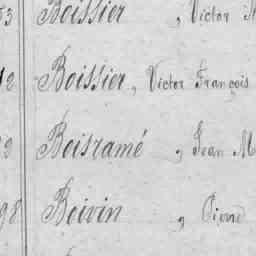 53 Boissier, Victor
12 Boissier, Victor François
Boisramé, Jean M
98 Boivin, Pierre